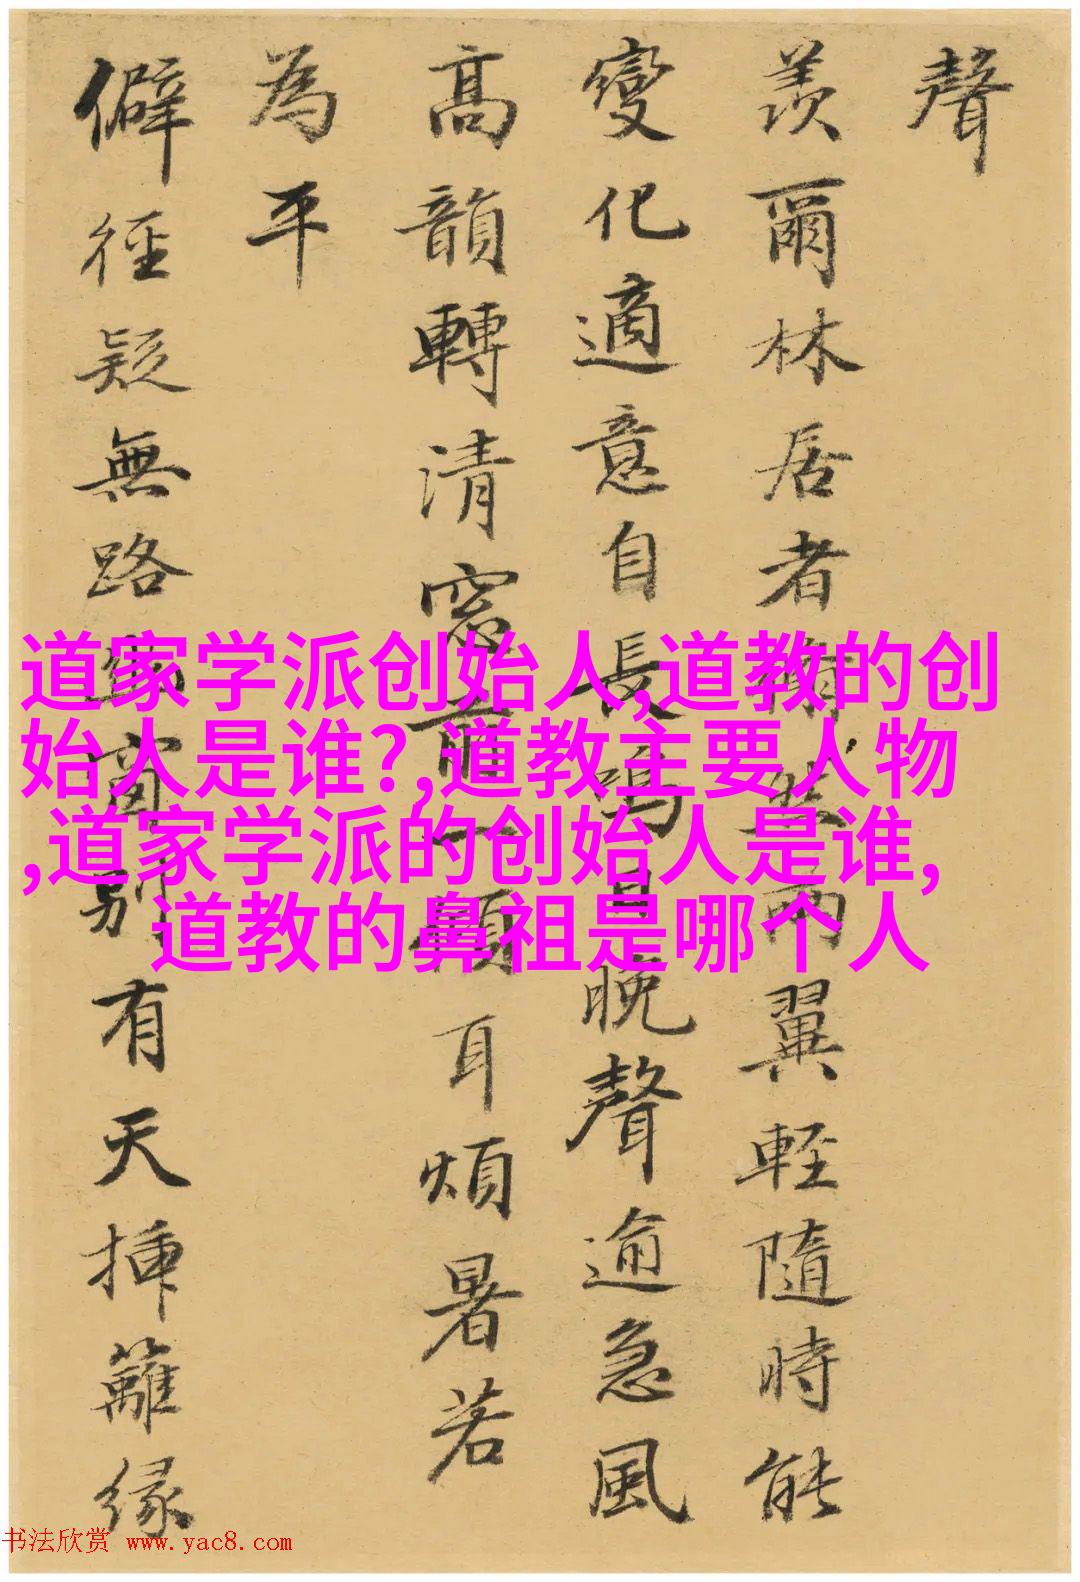 聲
羨爾林居者兩翼輕隨時能
變化適意自長鳴日晚聲逾急風
高韻轉清窓前一傾耳煩暑若
為平
僻徑疑無路窗別有天挿籬緣
道家学派创始人,道教的创
始人是谁?,道教主要人物
,道家学派的创始人是谁,
道教的鼻祖是哪个人
书法欣赏 www.yac8.com